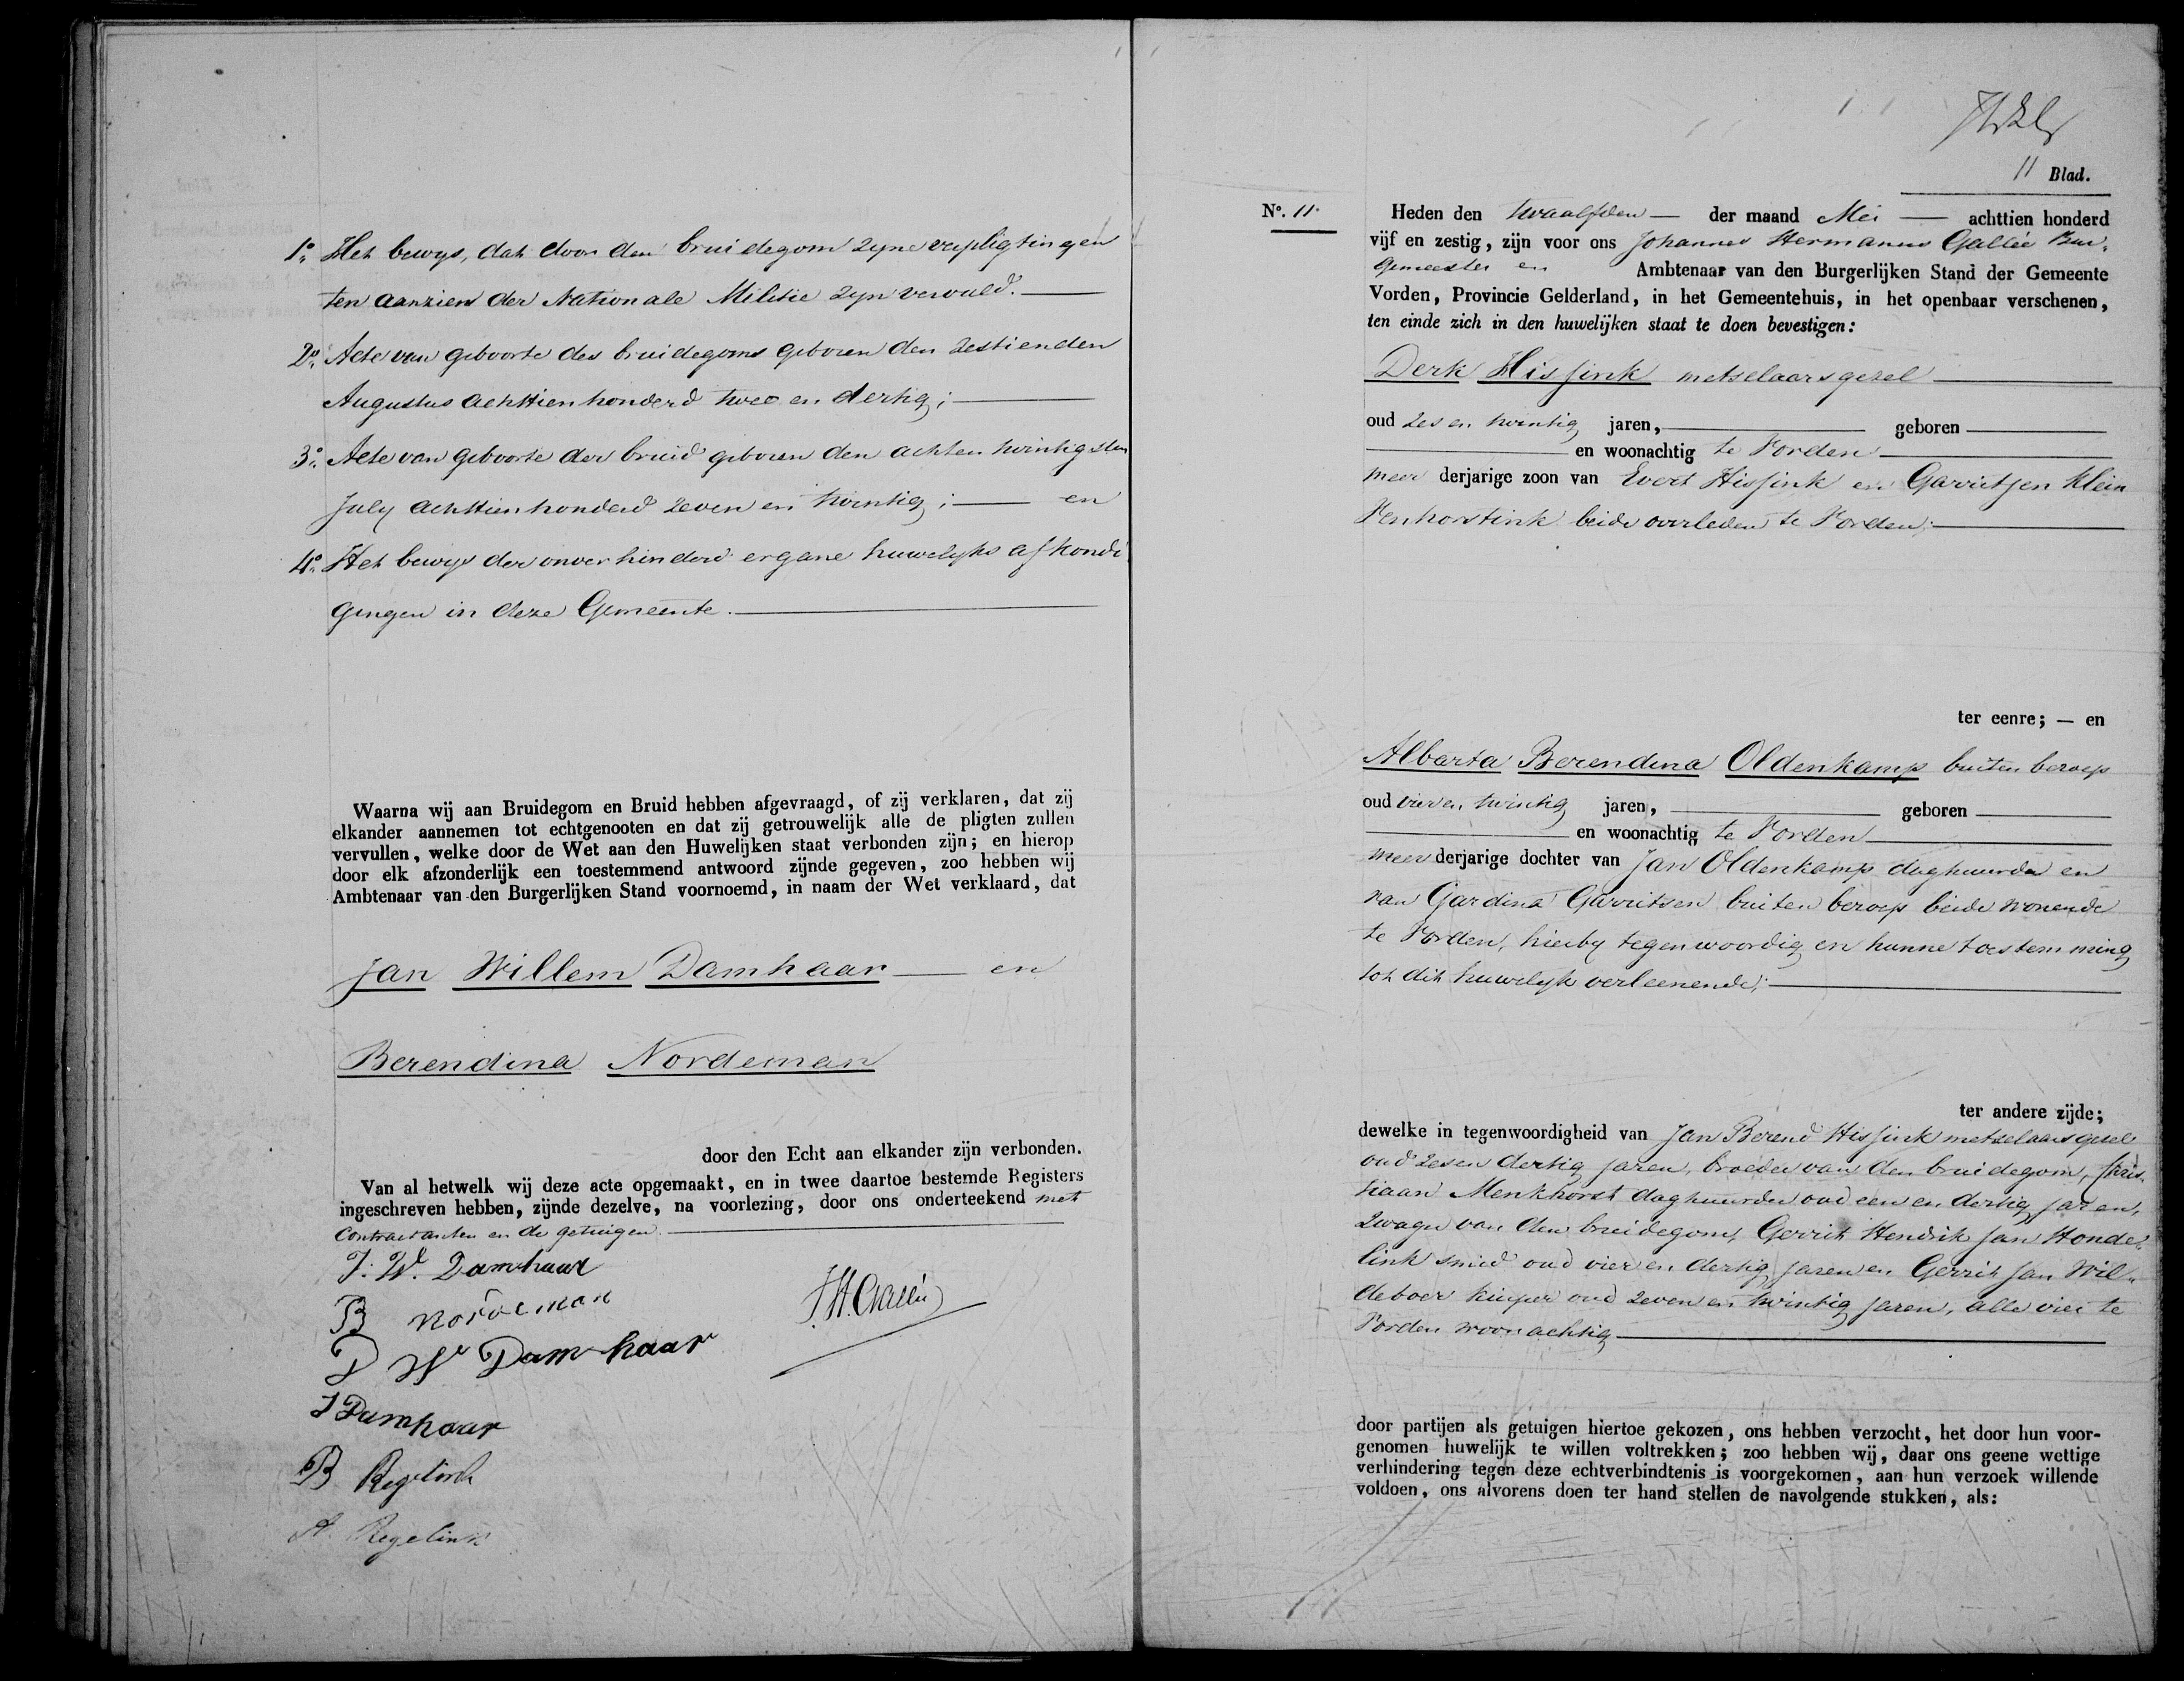 1o. Het bewijs, dat door den bruidegom zyne verpligtingen
ten aanzien der Nationale Militie zyn vervuld.
2o. Acte van geboorte des bruidegoms geboren den zestienden
Augustus achttienhonderd twee en dertig;
3o. Acte van geboorte der bruid geboren den achten twintigsten
July achttienhonderd zeven en twintig; en
4o. Het bewys der onverhinderd ergane huwelyks afkondi
gingen in deze Gemeente.
Waarna wij aan Bruidegom en Bruid hebben afgevraagd, of zij verklaren, dat zij
elkander aannemen tot echtgenooten en dat zij getrouwelijk alle de pligten zullen
vervullen, welke door de Wet aan den Huwelijken staat verbonden zijn; en hierop
door elk afzonderlijk een toestemmend antwoord zijnde gegeven, zoo hebben wij
Ambtenaar van den Burgerlijken Stand voornoemd, in naam der Wet verklaard, dat
Jan Willem Damhaar en
Berendina Nordeman
door den Echt aan elkander zijn verbonden.
Van al hetwelk wij deze acte opgemaakt, en in twee daartoe bestemde Registers
ingeschreven hebben, zijnde dezelve, na voorlezing, door ons onderteekend met
Contractanten en de getuigen.
J. W. Damhaar
B Nordeman
J.H. Gallée
D W Damhaar
J Damhaar
B Regelink
A. Regelink
11 Blad.
No. 11.
Heden den twaalfden der maand Mei achttien honderd
vijf en zestig, zijn voor ons Johannes Hermanus Gallée Bur,
gemeester en Ambtenaar van den Burgerlijken Stand der Gemeente
Vorden, Provincie Gelderland, in het Gemeentehuis, in het openbaar verschenen,
ten einde zich in den huwelijken staat te doen bevestigen:
Derk Hissink metselaarsgezel
oud zes en twintig jaren, geboren
en woonachtig te Vorden
meer derjarige zoon van Evert Hissink en Garritjen Klein
Venhorstink beide overleden te Vorden;
ter eenre; — en
Albarta Berendina Oldenkamp buiten beroep
oud vier en twintig jaren, geboren
en woonachtig te Vorden
meer derjarige dochter van Jan Oldenkamp daghuurder en
van Gardina Garritsen buiten beroep beide wonende
te Vorden, hierby tegenwoordig en hunne toestemming
tot dit huwelyk verleenende;
ter andere zijde;
dewelke in tegenwoordigheid van Jan Berend Hissink metselaarsgezel
oud zes en dertig jaren, broeder van den bruidegom,
tiaan Menkhorst daghuurder oud een en dertig jaren,
zwager van den bruidegom, Gerrit Hendrik Jan Honde,
link smid oud vier en dertig jaren en Gerrit Jan Wil,
deboer kuiper oud zeven en twintig jaren, alle vier te
Vorden woonachtig
door partijen als getuigen hiertoe gekozen, ons hebben verzocht, het door hun voor-
genomen huwelijk te willen voltrekken; zoo hebben wij, daar ons geene wettige
verhindering tegen deze echtverbindtenis is voorgekomen, aan hun verzoek willende
voldoen, ons alvorens doen ter hand stellen de navolgende stukken, als: